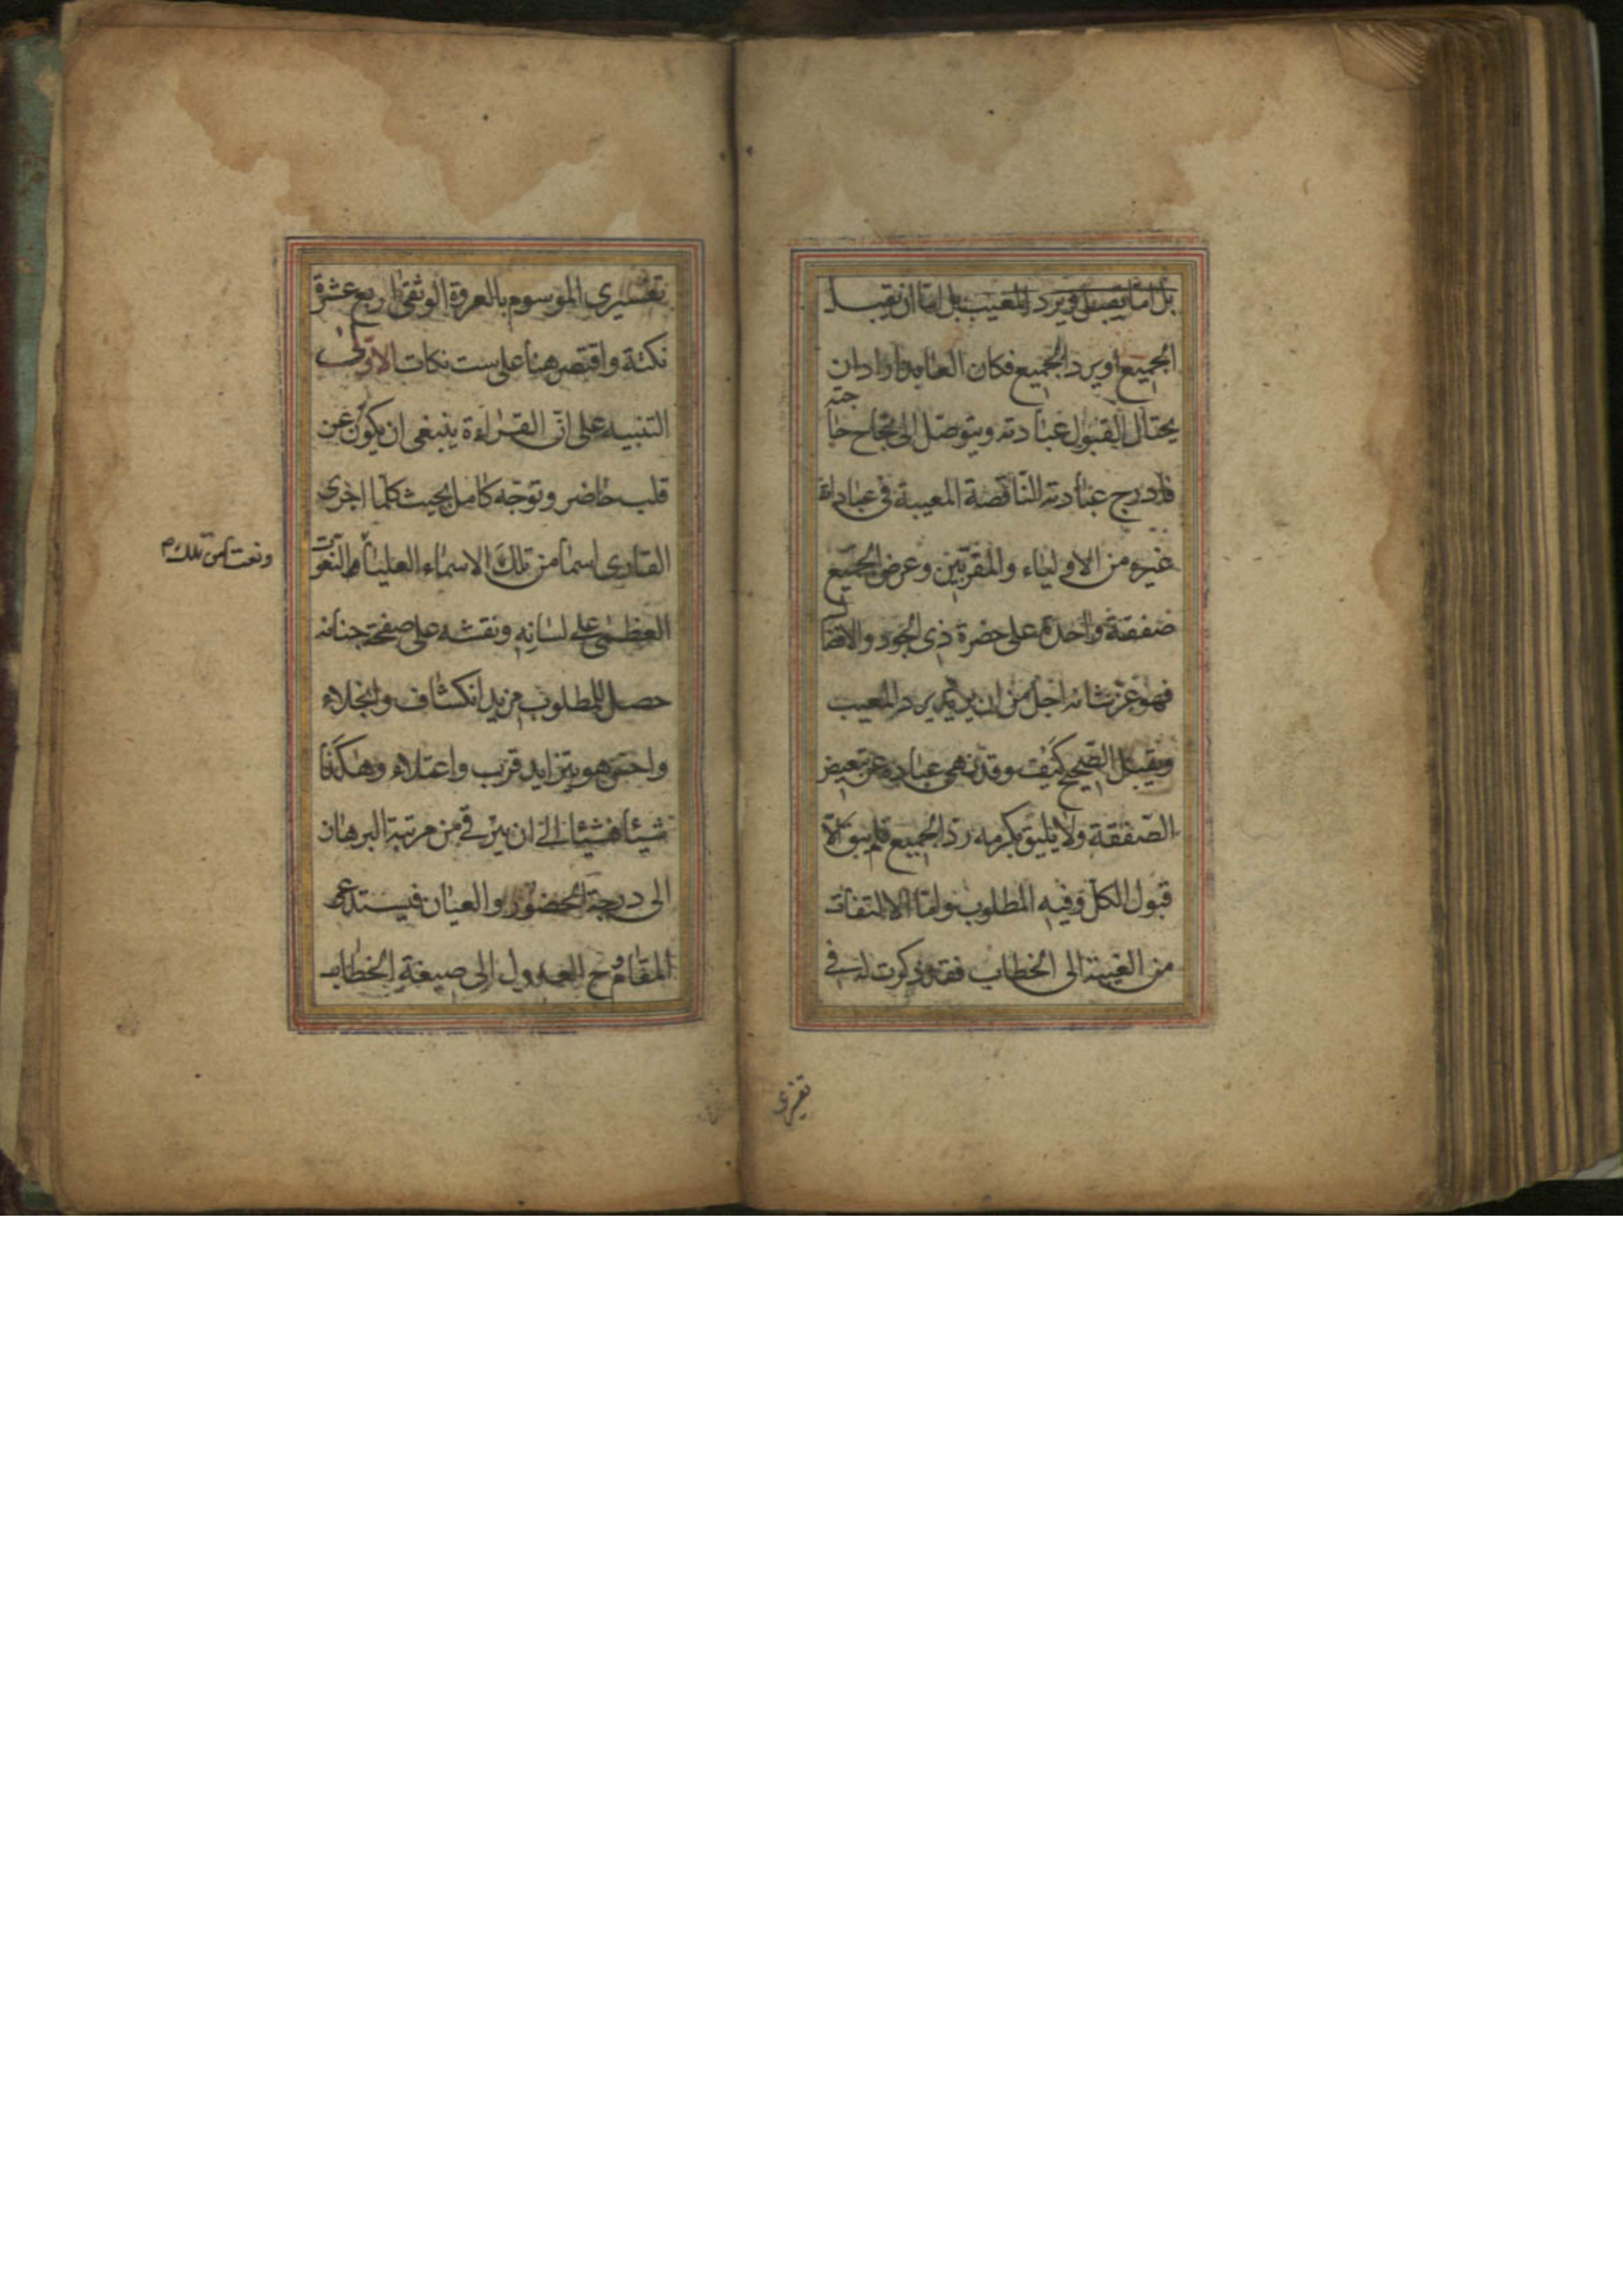 بل اما يقبل ويرد المعيب بل اما ان يقبل
الجميع او يرد الجميع فكان العابد اراد ان
يحتال لقبول عبادته ويتوصل الى نجاح حاجته
فادرج عبادته الناقصة المعيبة في عبادات
غيره من الاولياء والمقربين وعرض الجميع
صفقة واحدة على حضرة ذي الجود والافضال
فهو عز شانه اجل من ان يرد المعيب
ويقبل الصحيح كيف وقد نهى عباده عن تبعيض
الصفقة ولا يليق بكرمه رد الجميع فلم يبق الا
قبول الكل وفيه المطلوب واما الالتفات
من الغيبة الى الخطاب فقد ذكرت له في
تفسيرى
تفسيرى الموسوم بالعروة الوثقى اربع عشرة
نكتة واقتصر هنا على ست نكات الاولى
التنبيه على ان القراءة ينبغي ان يكون عن
قلب حاضر وتوجه كامل بحيث كلما اجرى
القارى اسما من تلك الاسماء العليا والنعوت
ونعتا من تلك
العظمى على لسانه ونقشه على صفحة جنانه
حصل للمطلوب مزيد انكشاف وانجلاء
واحس هو بتزايد قرب واعتلاء وهكذا
شيئا فشيئا الى ان يترقى من مرتبة البرهان
الى درجة الحضور والعيان فيستدعى
المقام ح العدول الى صيغة الخطاب